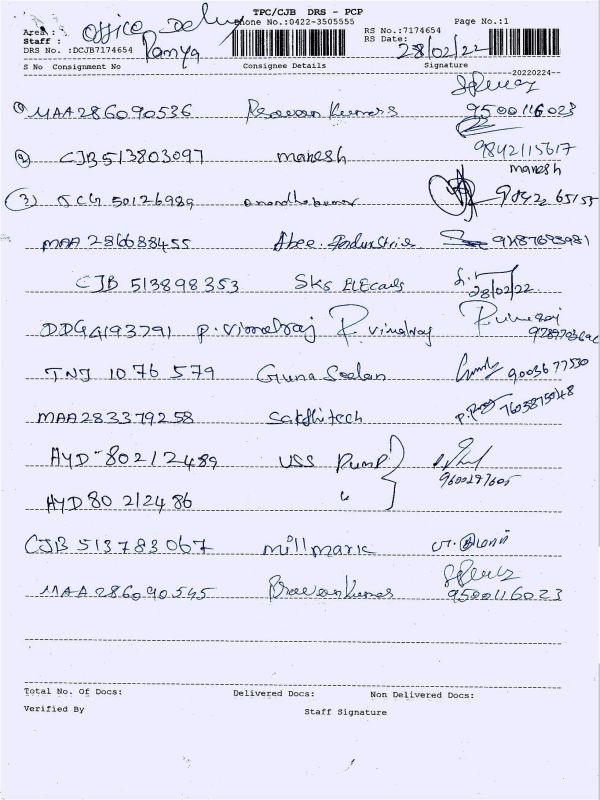 TPC/CJB DRS - PCP
Area : Office Delivery Phone No.:0422-3505555 RS No.:7174654 Page No.:1
Staff : Ramya RS Date: 28/02/22
DRS No. :DCJB7174654
S No Consignment No Consignee Details Signature
20220224
① MAA286090536 Pravan Kumars 9500116023
② CJB513803097 manesh 9842115617
manesh
③ JCG 50126989 anandhakumar 98422 65155
MAA 286688455 Abee Industries
CJB 513898353 SKS ELEcads 28/02/22
DDG4193791 P. Vimalraj P. Vimalraj
TNJ 1076 579 Guna Seelan 9003677530
MAA283379258 Sakthitech
HYD-80212489 USS Pump 9600297605
HYD80 212486 "
CJB 513783067 millmark
MAA286090545 Pravankumar 9500116023
Total No. Of Docs: Delivered Docs: Non Delivered Docs:
Verified By Staff Signature